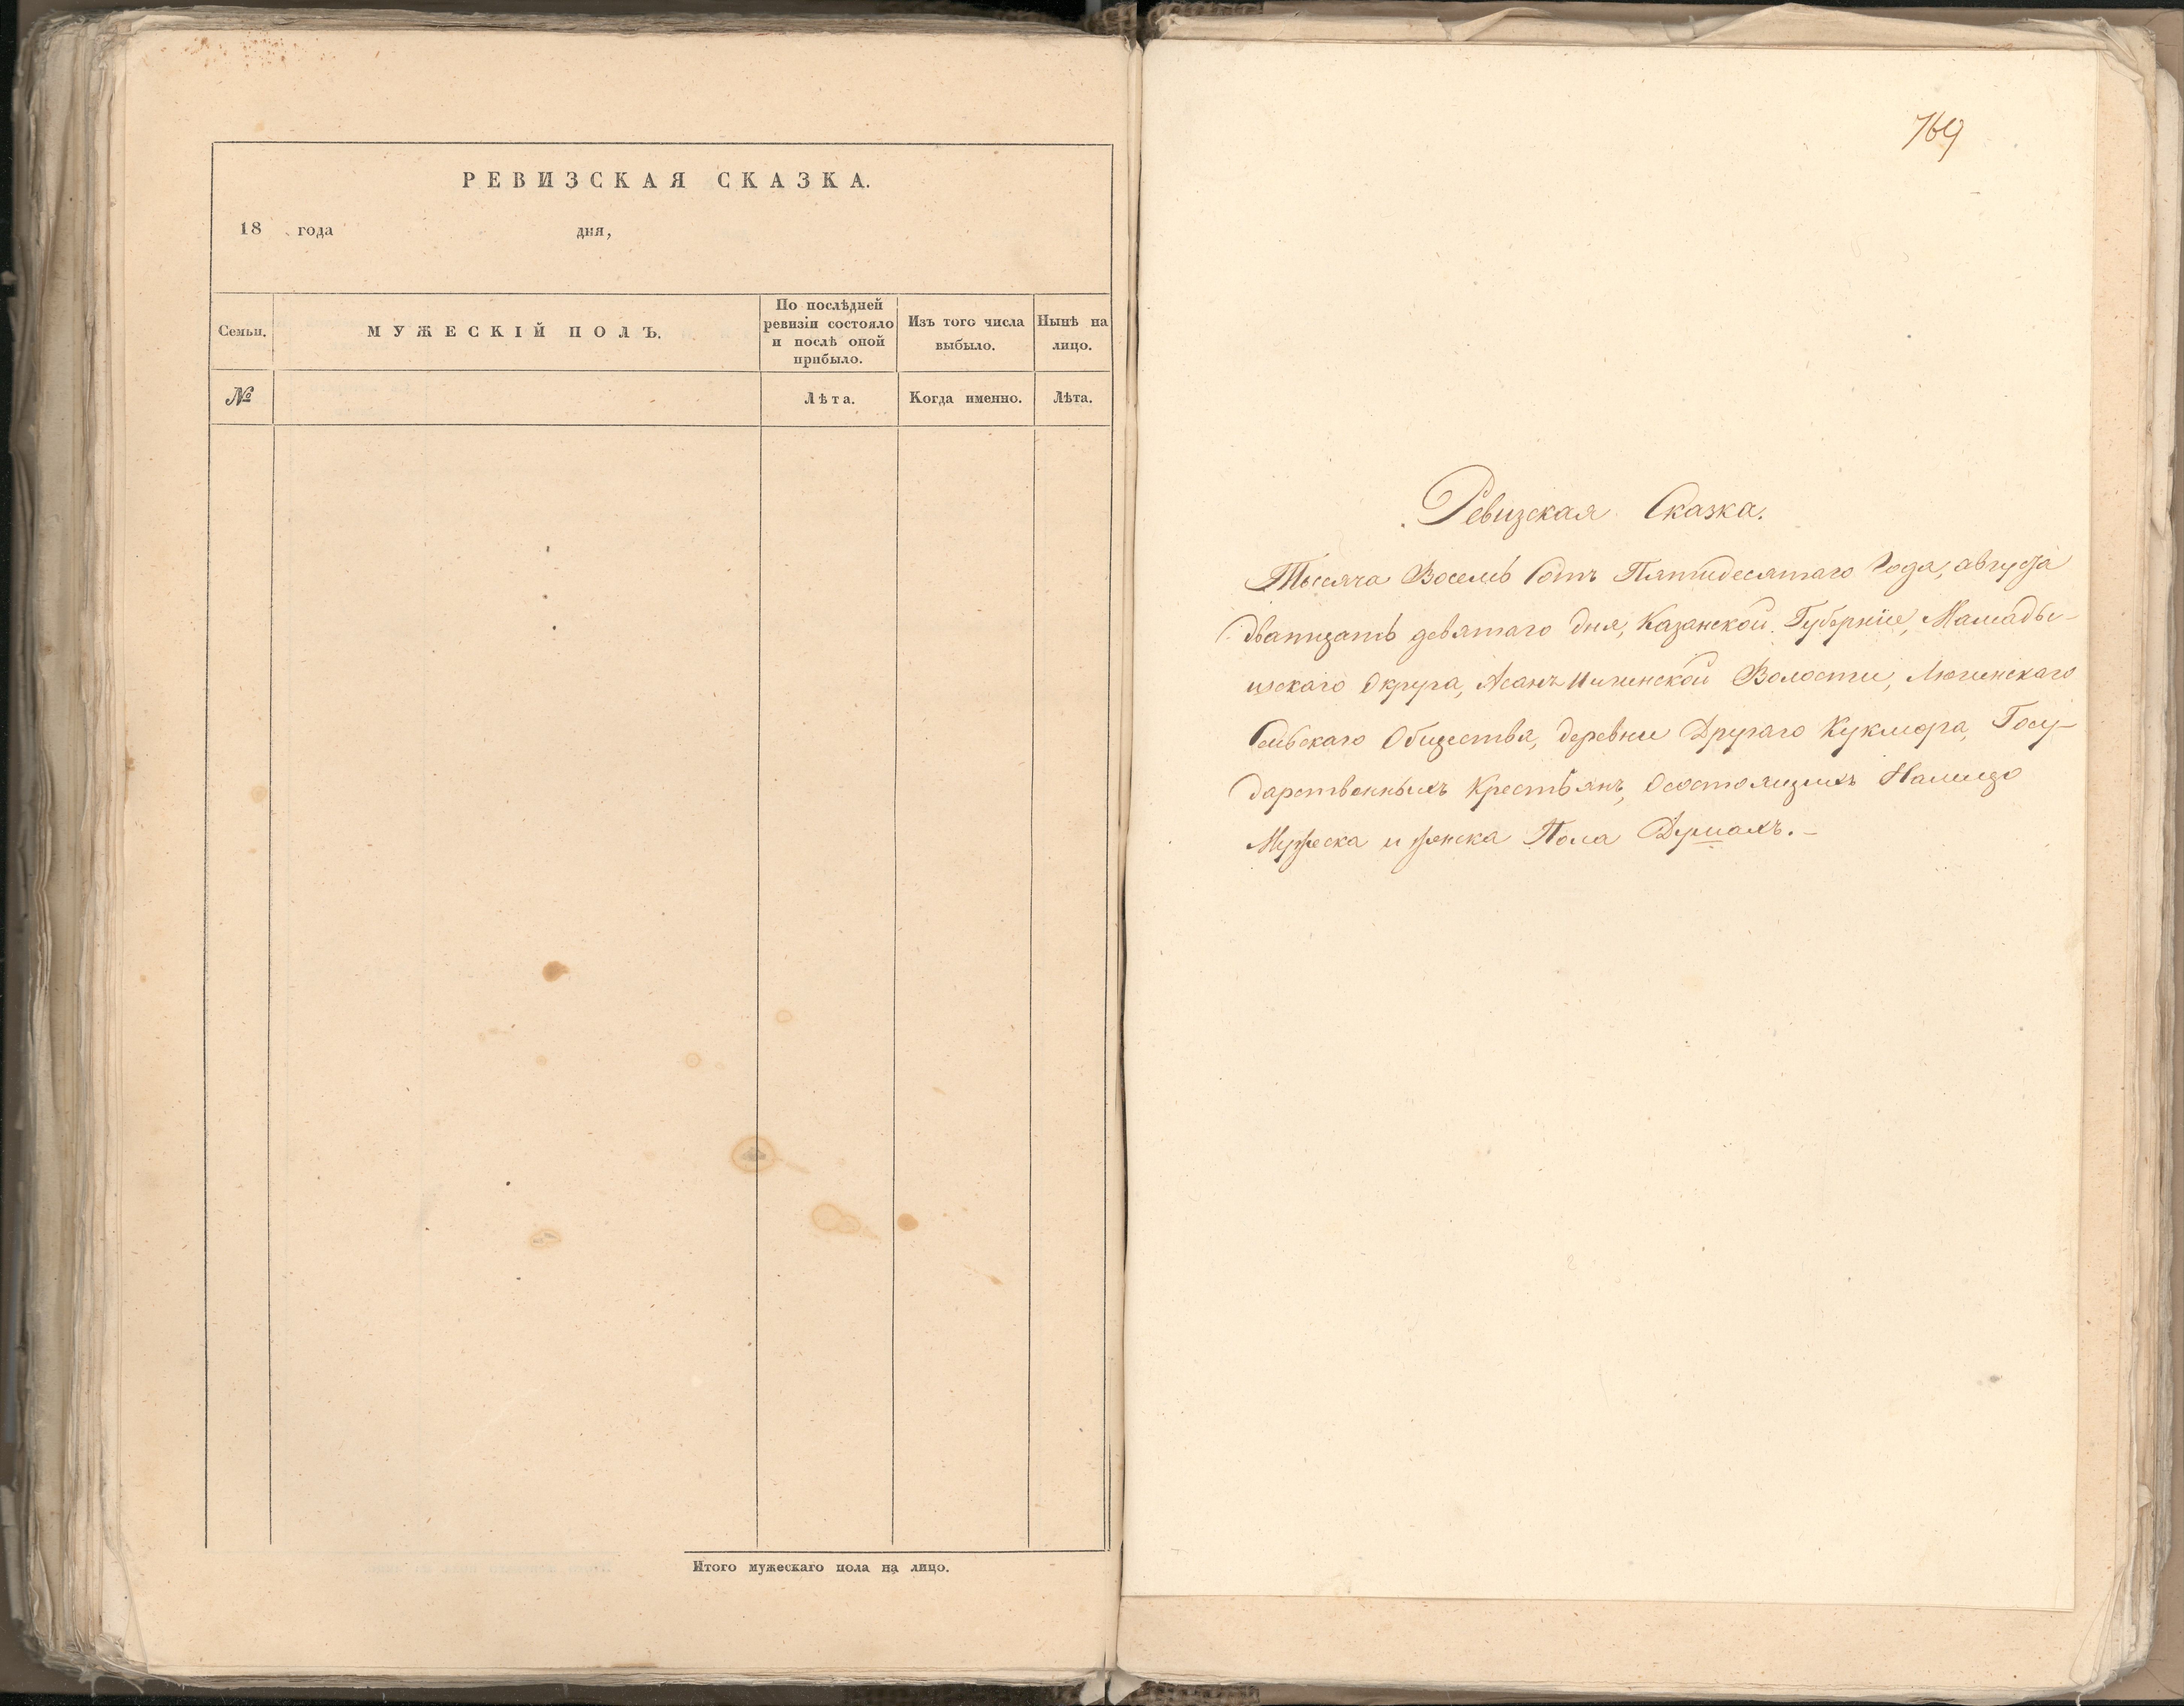 РЕВИЗСКАЯ СКАЗКА.
18 года дня,
Семьи.
МУЖЕСКІЙ ПОЛЪ.
По послѣдней
ревизіи состояло
и послѣ оной
прибыло.
Изъ того числа
выбыло.
Нынѣ на
лицо.
№
Лѣта.
Когда именно.
Лѣта.
Итого мужескаго пола на лицо.
769
Ревизская Сказка.
Тысяча Восемь Сотъ Пятидесятаго Года, августа
дватцать девятаго дня, Казанской Губерніи, Мамады-
шскаго Округа, Асанъ Илгинской Волости, Люгинскаго
Сельскаго Общества, деревни Другаго Кукмора, Госу-
дарственныхъ Крестьянъ, Осостоящихъ Налицо
Мужеска и женска Пола Душахъ.-